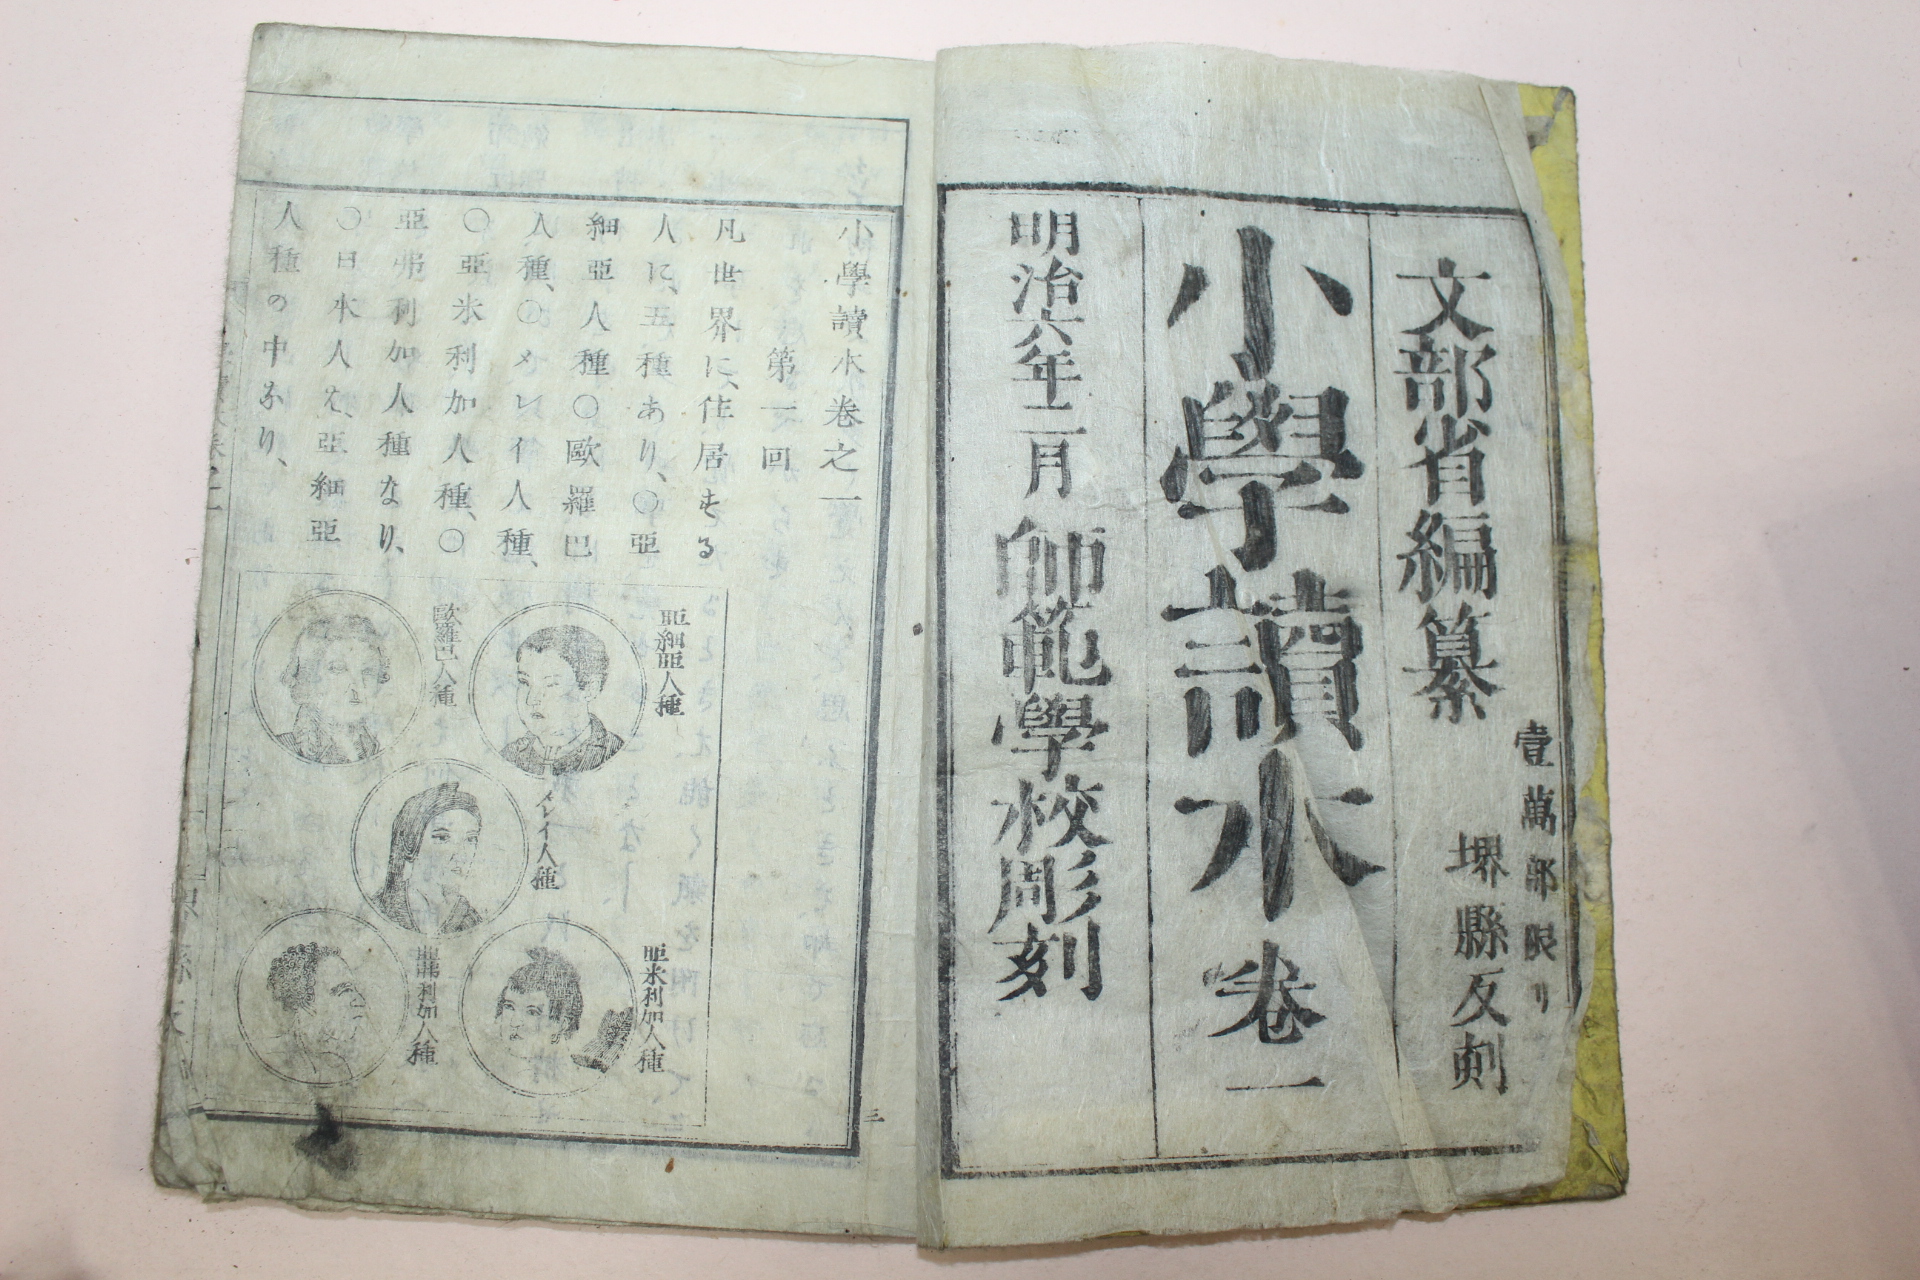 文部省編纂
壹萬部限リ
堺縣反刻
小學讀本 卷一
明治六年三月 師範學校彫刻
小學讀本卷之一
第一回
凡世界に、住居する
人に、五種あり、〇亞
細亞人種〇歐羅巴
人種、〇メレイ人種、
〇亞米利加人種、〇
亞弗利加人種なり、
〇日本人は、亞細亞
人種の中なり、
亜細亜人種
歐羅巴人種
メレイ人種
亜米利加人種
亜弗利加人種
三